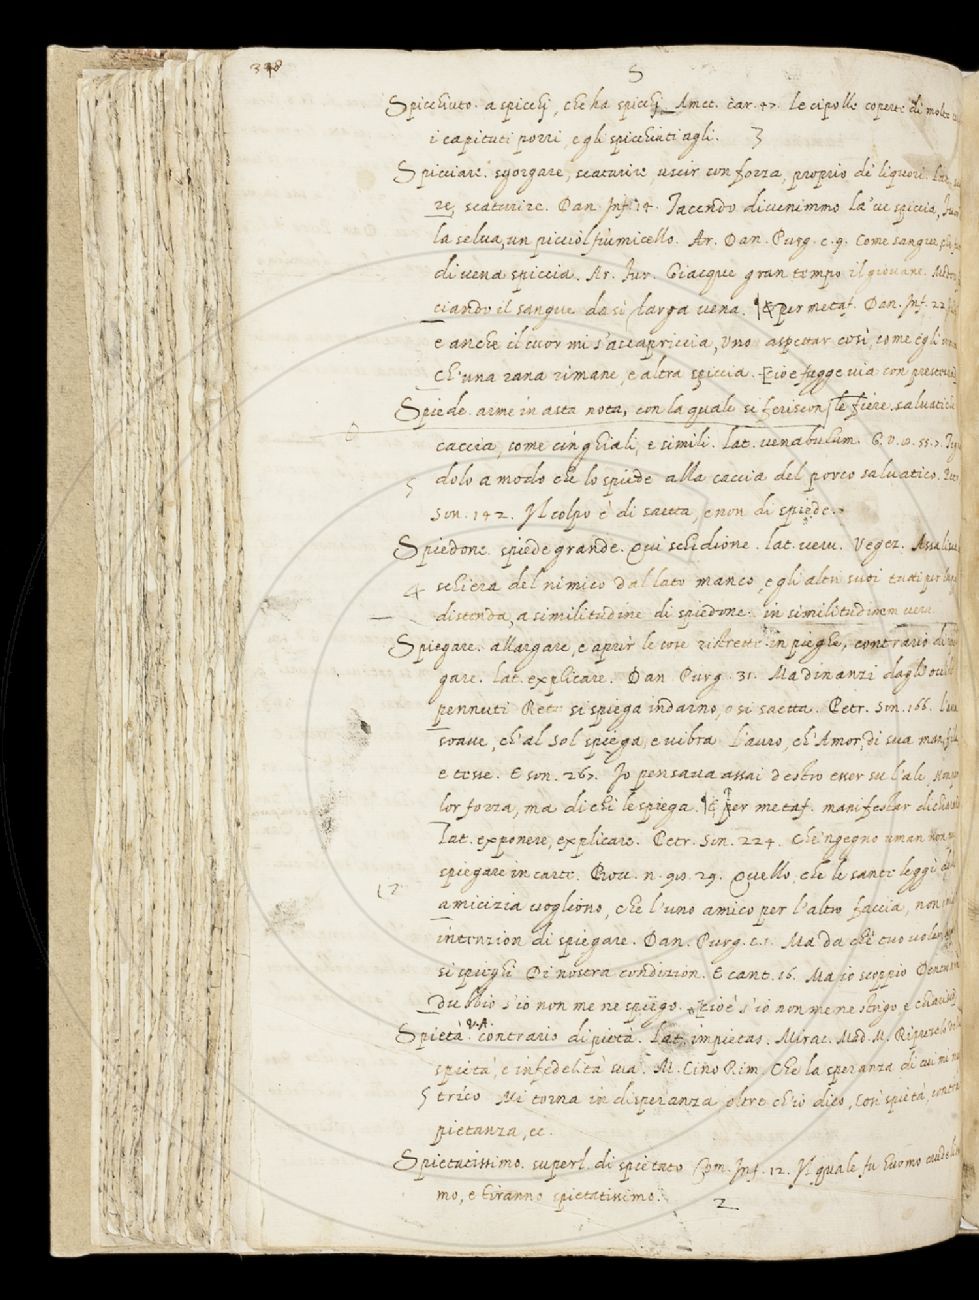 338
S
Spicchiuto. a spicchj, che ha spicchj. Amet. car. 47. le cipolle coperte di molte
i capituti porri, e gli spicchiuti agli. 3
Spicciare. sgorgare, scaturire, uscir con forza, proprio de' liquori. Lat.
re, scaturire. Dan. Inf. 14. Tacendo divenimmo la've spiccia,
la selva, un picciol fiumicello. Ar. Dan. Purg. c. 9. Come sangue
di vena spiccia. Ar. Fur. Giacque gran tempo il giovane
ciando il sangue da sì larga vena. & per metaf. Dan. Inf. 22
e anche il cuor mi s'accapriccia, Uno aspettar così, come egli
Ch'una rana rimane, e altra spiccia. cioè fugge via con
Spiede. arme in asta nota, con la quale si feriscon le fiere salvatiche
caccia, come cinghiali, e simili. Lat. venabulum. G. V. 10. 55. 7.
5 dolo a modo che lo spiede alla caccia del porco salvatico.
son. 142. Il colpo è di saetta, e non di spiede.
Spiedone. spiede grande. Qui schidione. lat. veru. Vegez.
4 schiera del nimico dal lato manco, e gli altri suoi tutti per
distenda, a similitudine di spiedone. in similitudinem veru.
Spiegare. allargare, e aprir le cose ristrette in pieghe, contrario di
gare. lat. explicare. Dan Purg. 31. Ma dinanzi dagli occhi
pennuti Rete si spiega indarno, o si saetta. Petr. Son. 166. l'aura
soave, ch'al sol spiega, e vibra L'auro, ch'Amor, di sua man,
e tesse. E son. 267. Io pensava assai destro esser su l'ale, Non per
lor forza, ma di chi le spiega. & per metaf. manifestar
lat. exponere, explicare. Petr. Son. 224. Che 'ngegno uman non
spiegare in carte. Bocc. n. 98. 29. Quello, che le sante leggi
12 amicizia vogliono, che l'uno amico per l'altro faccia, non
intenzion di spiegare. Dan. Purg. c. 1. Ma da che è tuo voler
si spieghi Di nostra condizion. E cant. 16. Ma io scoppio Dentro
dubbio s'io non me ne spiego. cioè s'io non me ne sbrigo e
Spietà V.A. contrario di pietà. Lat. impietas. Mirac. Mad. M.
spietà, e infedeltà sua. M. Cino Rim. Che la speranza di cui mi
5 trico Mi torna in disperanza oltre ch'io dico, Con spietà, contra
pietanza, ec.
Spietatissimo. superl. di spietato Com. Inf. 12. Il quale fu huomo
mo, e tiranno spietatissimo. 2